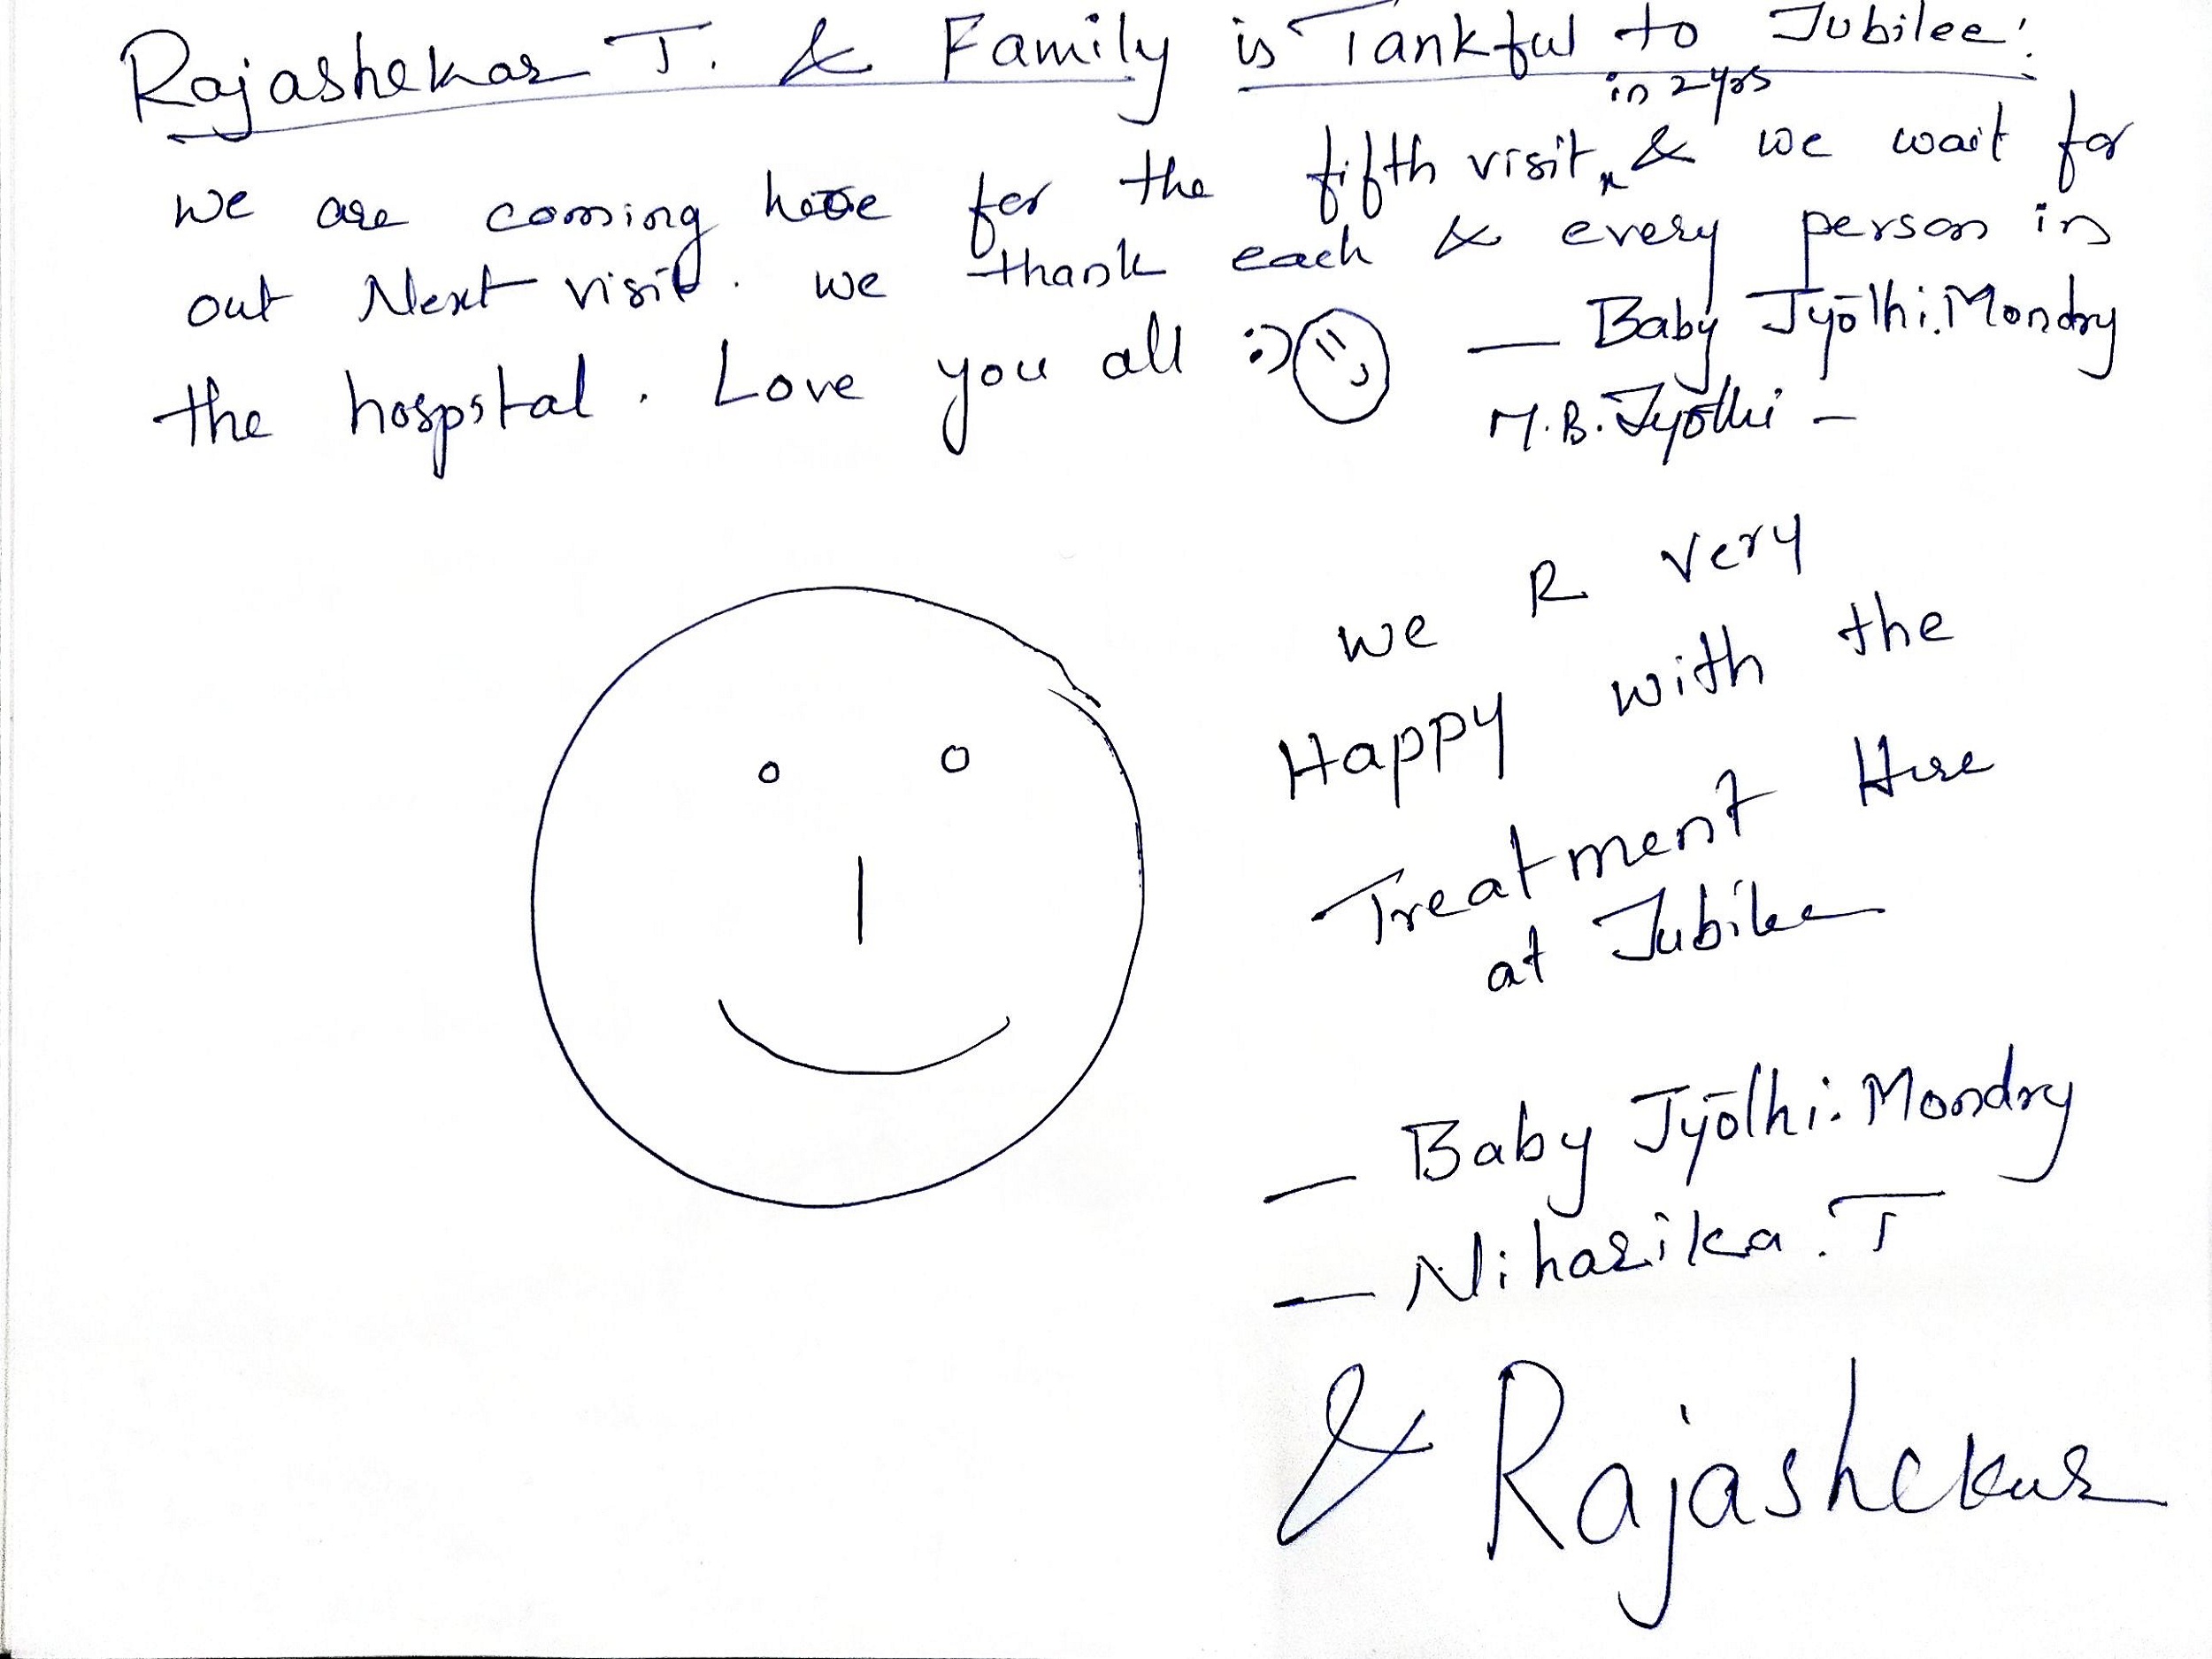 Rajashekar T. & Family is Tankful to Jubilee!
in 2 yrs
we are coming here for the fifth visit & we wait for
out Next visit. we thank each & every person in
the hospital. Love you all :)
— Baby Jyothi. Mondry
M.B. Jyothi -
we R very
Happy with the
Treatment Here
at Jubilee
— Baby Jyothi. Mondry
— Niharika. T
& Rajashekar